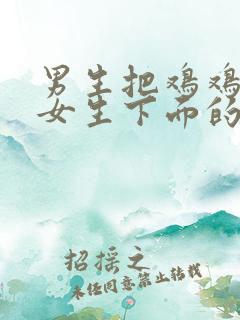 男生把鸡鸡
女生下面的
招摇之
未经同意禁止转载